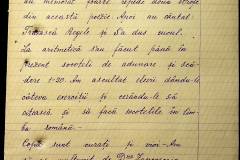 au memorat foarte repede două strofe
din această poezie. Apoi au cântat:
Trăiască Regele și Sa dus cucul.
La aritmetică s'au făcut până în
prezent socoteli de adunare și scă-
dere 1-20. Am ascultat elevii dându-le
câteva exerciții și cerându-le să
citească și să facă socotelile în lim-
ba română.-
Copiii sunt curați și
de